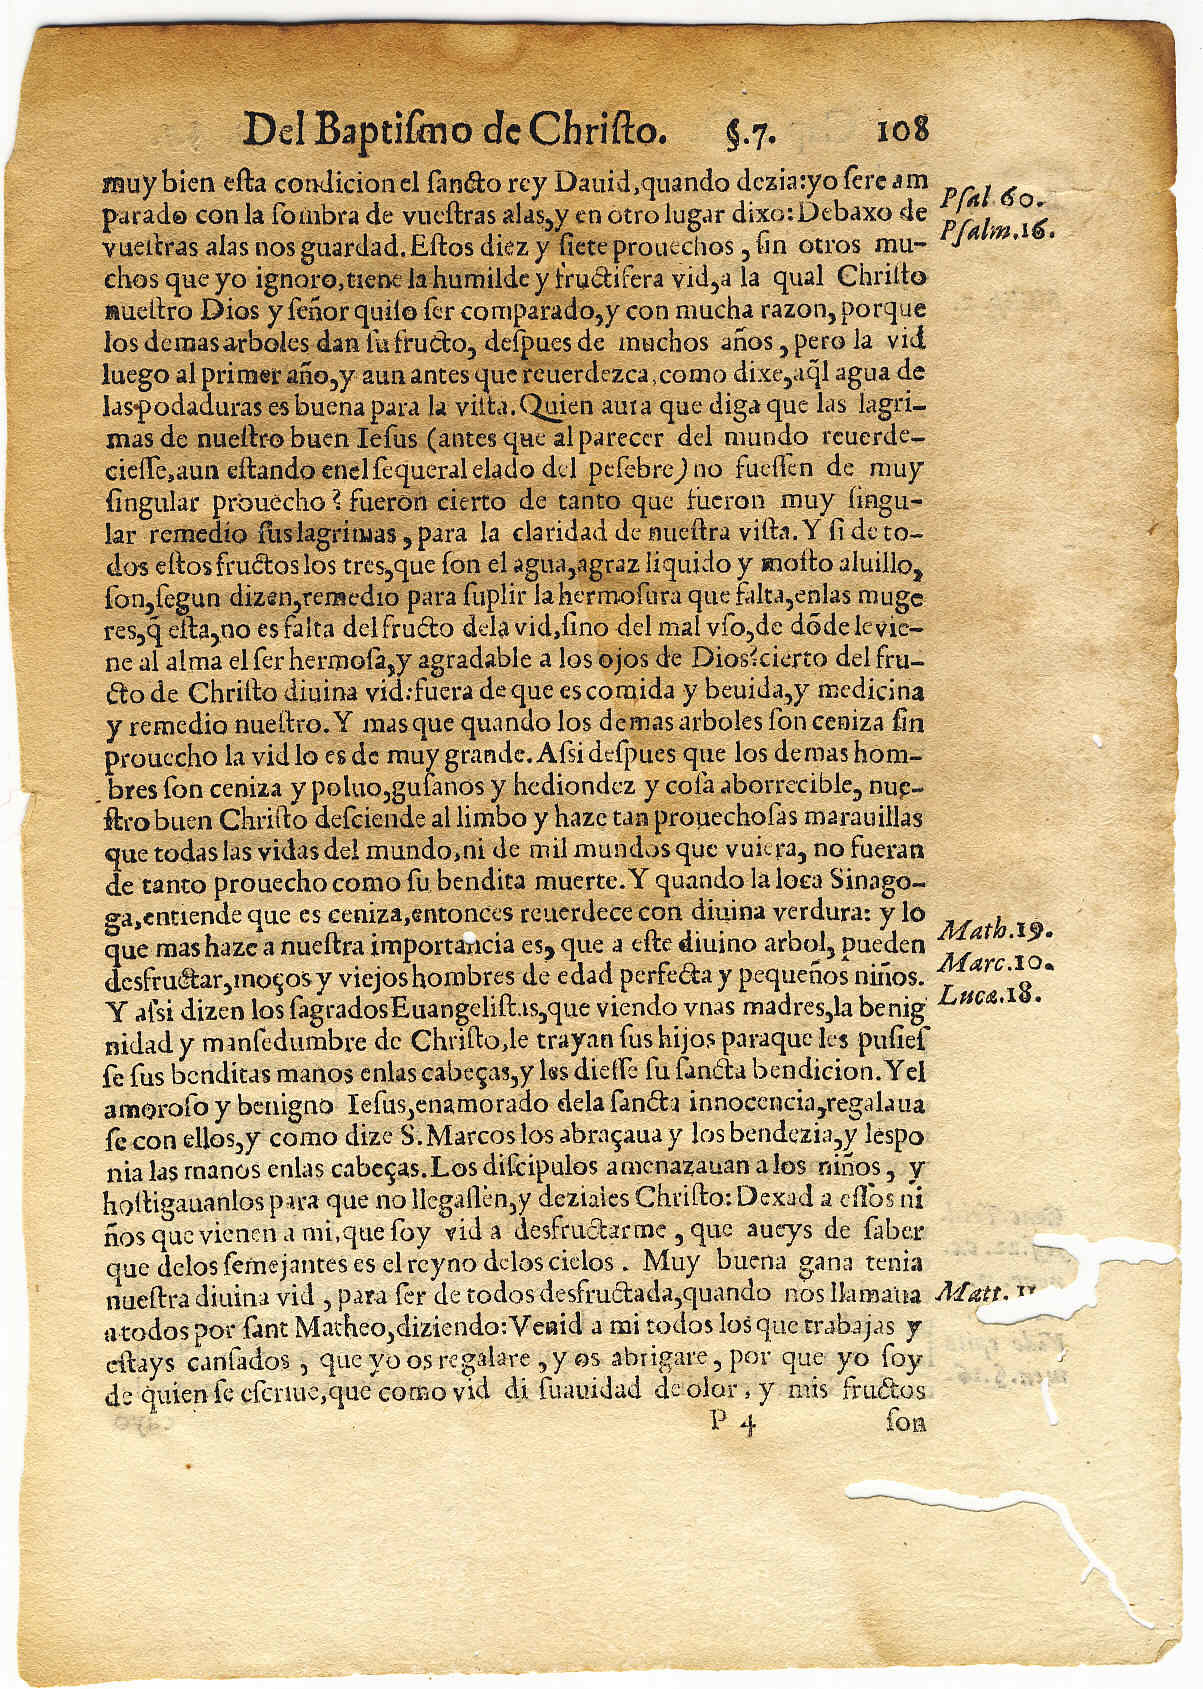 Del Baptiſmo de Chriſto. §.7. 108
muy bien eſta condicion el ſancto rey Dauid,quando dezia:yo ſere am
parado con la ſombra de vueſtras alas,y en otro lugar dixo:Debaxo de
vueſtras alas nos guardad.Eſtos diez y ſiete prouechos , ſin otros mu-
chos que yo ignoro,tiene la humilde y fructifera vid,a la qual Chriſto
nueſtro Dios y ſeñor quiſo ſer comparado,y con mucha razon,porque
los demas arboles dan ſu fructo, deſpues de muchos años , pero la vid
luego al primer año,y aun antes que reuerdezca,como dixe,aq̃l agua de
las podaduras es buena para la viſta.Quien aura que diga que las lagri-
mas de nueſtro buen Ieſus (antes que al parecer del mundo reuerde-
cieſſe,aun eſtando enel ſequeral elado del peſebre) no fueſſen de muy
ſingular prouecho? fueron cierto de tanto que fueron muy ſingu-
lar remedio ſus lagrimas , para la claridad de nueſtra viſta. Y ſi de to-
dos eſtos fructos los tres,que ſon el agua,agraz liquido y moſto aluillo,
ſon,ſegun dizen,remedio para ſuplir la hermoſura que falta,enlas muge
res,q̃ eſta,no es falta del fructo dela vid,ſino del mal vſo,de dõde le vie-
ne al alma el ſer hermoſa,y agradable a los ojos de Dios?cierto del fru-
cto de Chriſto diuina vid:fuera de que es comida y beuida,y medicina
y remedio nueſtro. Y mas que quando los demas arboles ſon ceniza ſin
prouecho la vid lo es de muy grande. Aſsi deſpues que los demas hom-
bres ſon ceniza y poluo,guſanos y hediondez y coſa aborrecible, nue-
ſtro buen Chriſto deſciende al limbo y haze tan prouechoſas marauillas
que todas las vidas del mundo,ni de mil mundos que vuiera, no fueran
de tanto prouecho como ſu bendita muerte. Y quando la loca Sinago-
ga,entiende que es ceniza,entonces reuerdece con diuina verdura: y lo
que mas haze a nueſtra importancia es, que a eſte diuino arbol, pueden
desfructar,moços y viejos hombres de edad perfecta y pequeños niños.
Y aſsi dizen los ſagrados Euangeliſtas,que viendo vnas madres,la benig
nidad y manſedumbre de Chriſto,le trayan ſus hijos paraque les puſieſ
ſe ſus benditas manos enlas cabeças,y les dieſſe ſu ſancta bendicion. Y el
amoroſo y benigno Ieſus,enamorado dela ſancta innocencia,regalaua
ſe con ellos,y como dize S. Marcos los abraçaua y los bendezia,y lespo
nia las manos enlas cabeças. Los diſcipulos amenazauan a los niños , y
hoſtigauanlos para que no llegaſſen,y deziales Chriſto: Dexad a eſſos ni
ños que vienen a mi,que ſoy vid a desfructarme , que aueys de ſaber
que delos ſemejantes es el reyno delos cielos . Muy buena gana tenia
nueſtra diuina vid , para ſer de todos desfructada,quando nos llamaua
a todos por ſant Matheo,diziendo:Venid a mi todos los que trabajas y
eſtays canſados , que yo os regalare , y os abrigare , por que yo ſoy
de quien ſe eſcriue,que como vid di ſuauidad de olor , y mis fructos
P 4 ſon
Pſal 60.
Pſalm.16.
Math.19.
Marc.10.
Lucæ.18.
Matt. 11